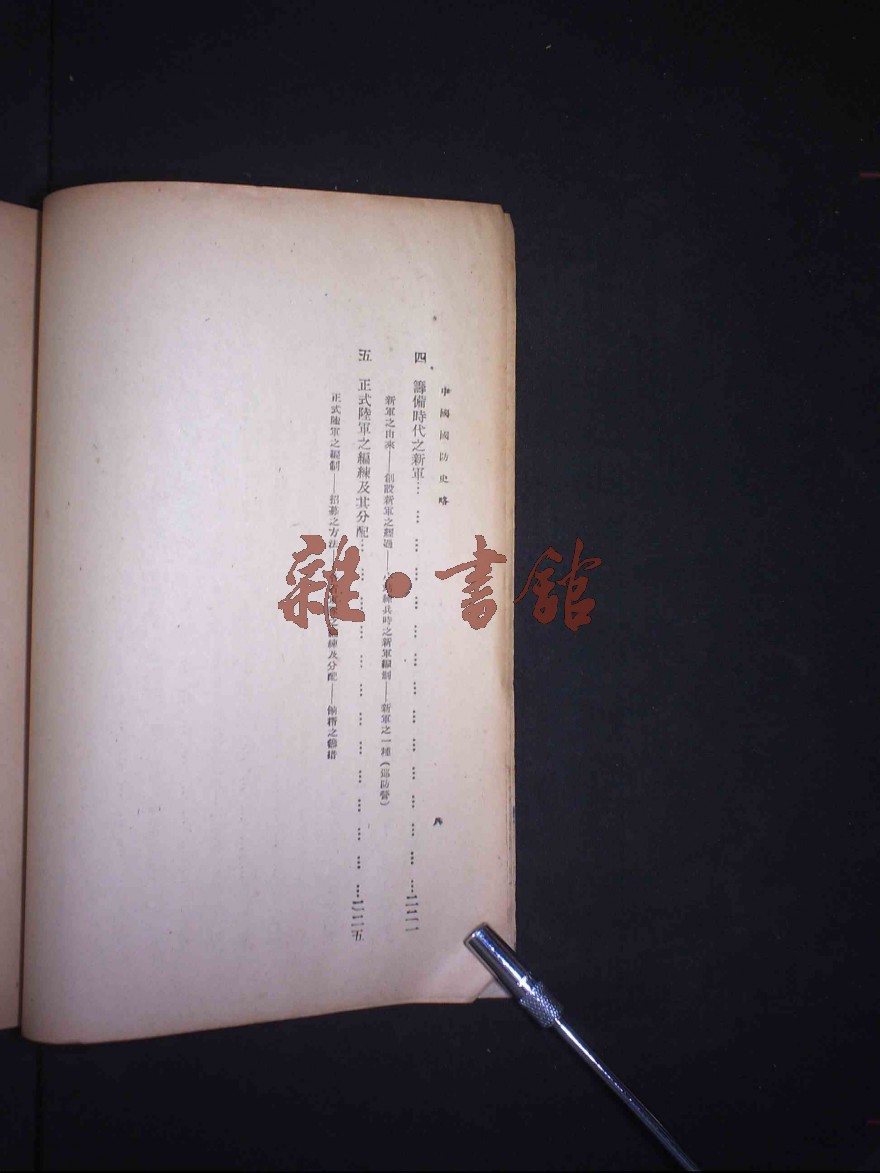 中國國防史略
四 籌備時代之新軍……二二一
新軍之由來——創設新軍之經過——練兵時之新軍編制——新軍之一種(巡防營)
五 正式陸軍之編練及其分配……二二五
正式陸軍之編制——招募之方法——練及分配——餉糈之
雜·書館